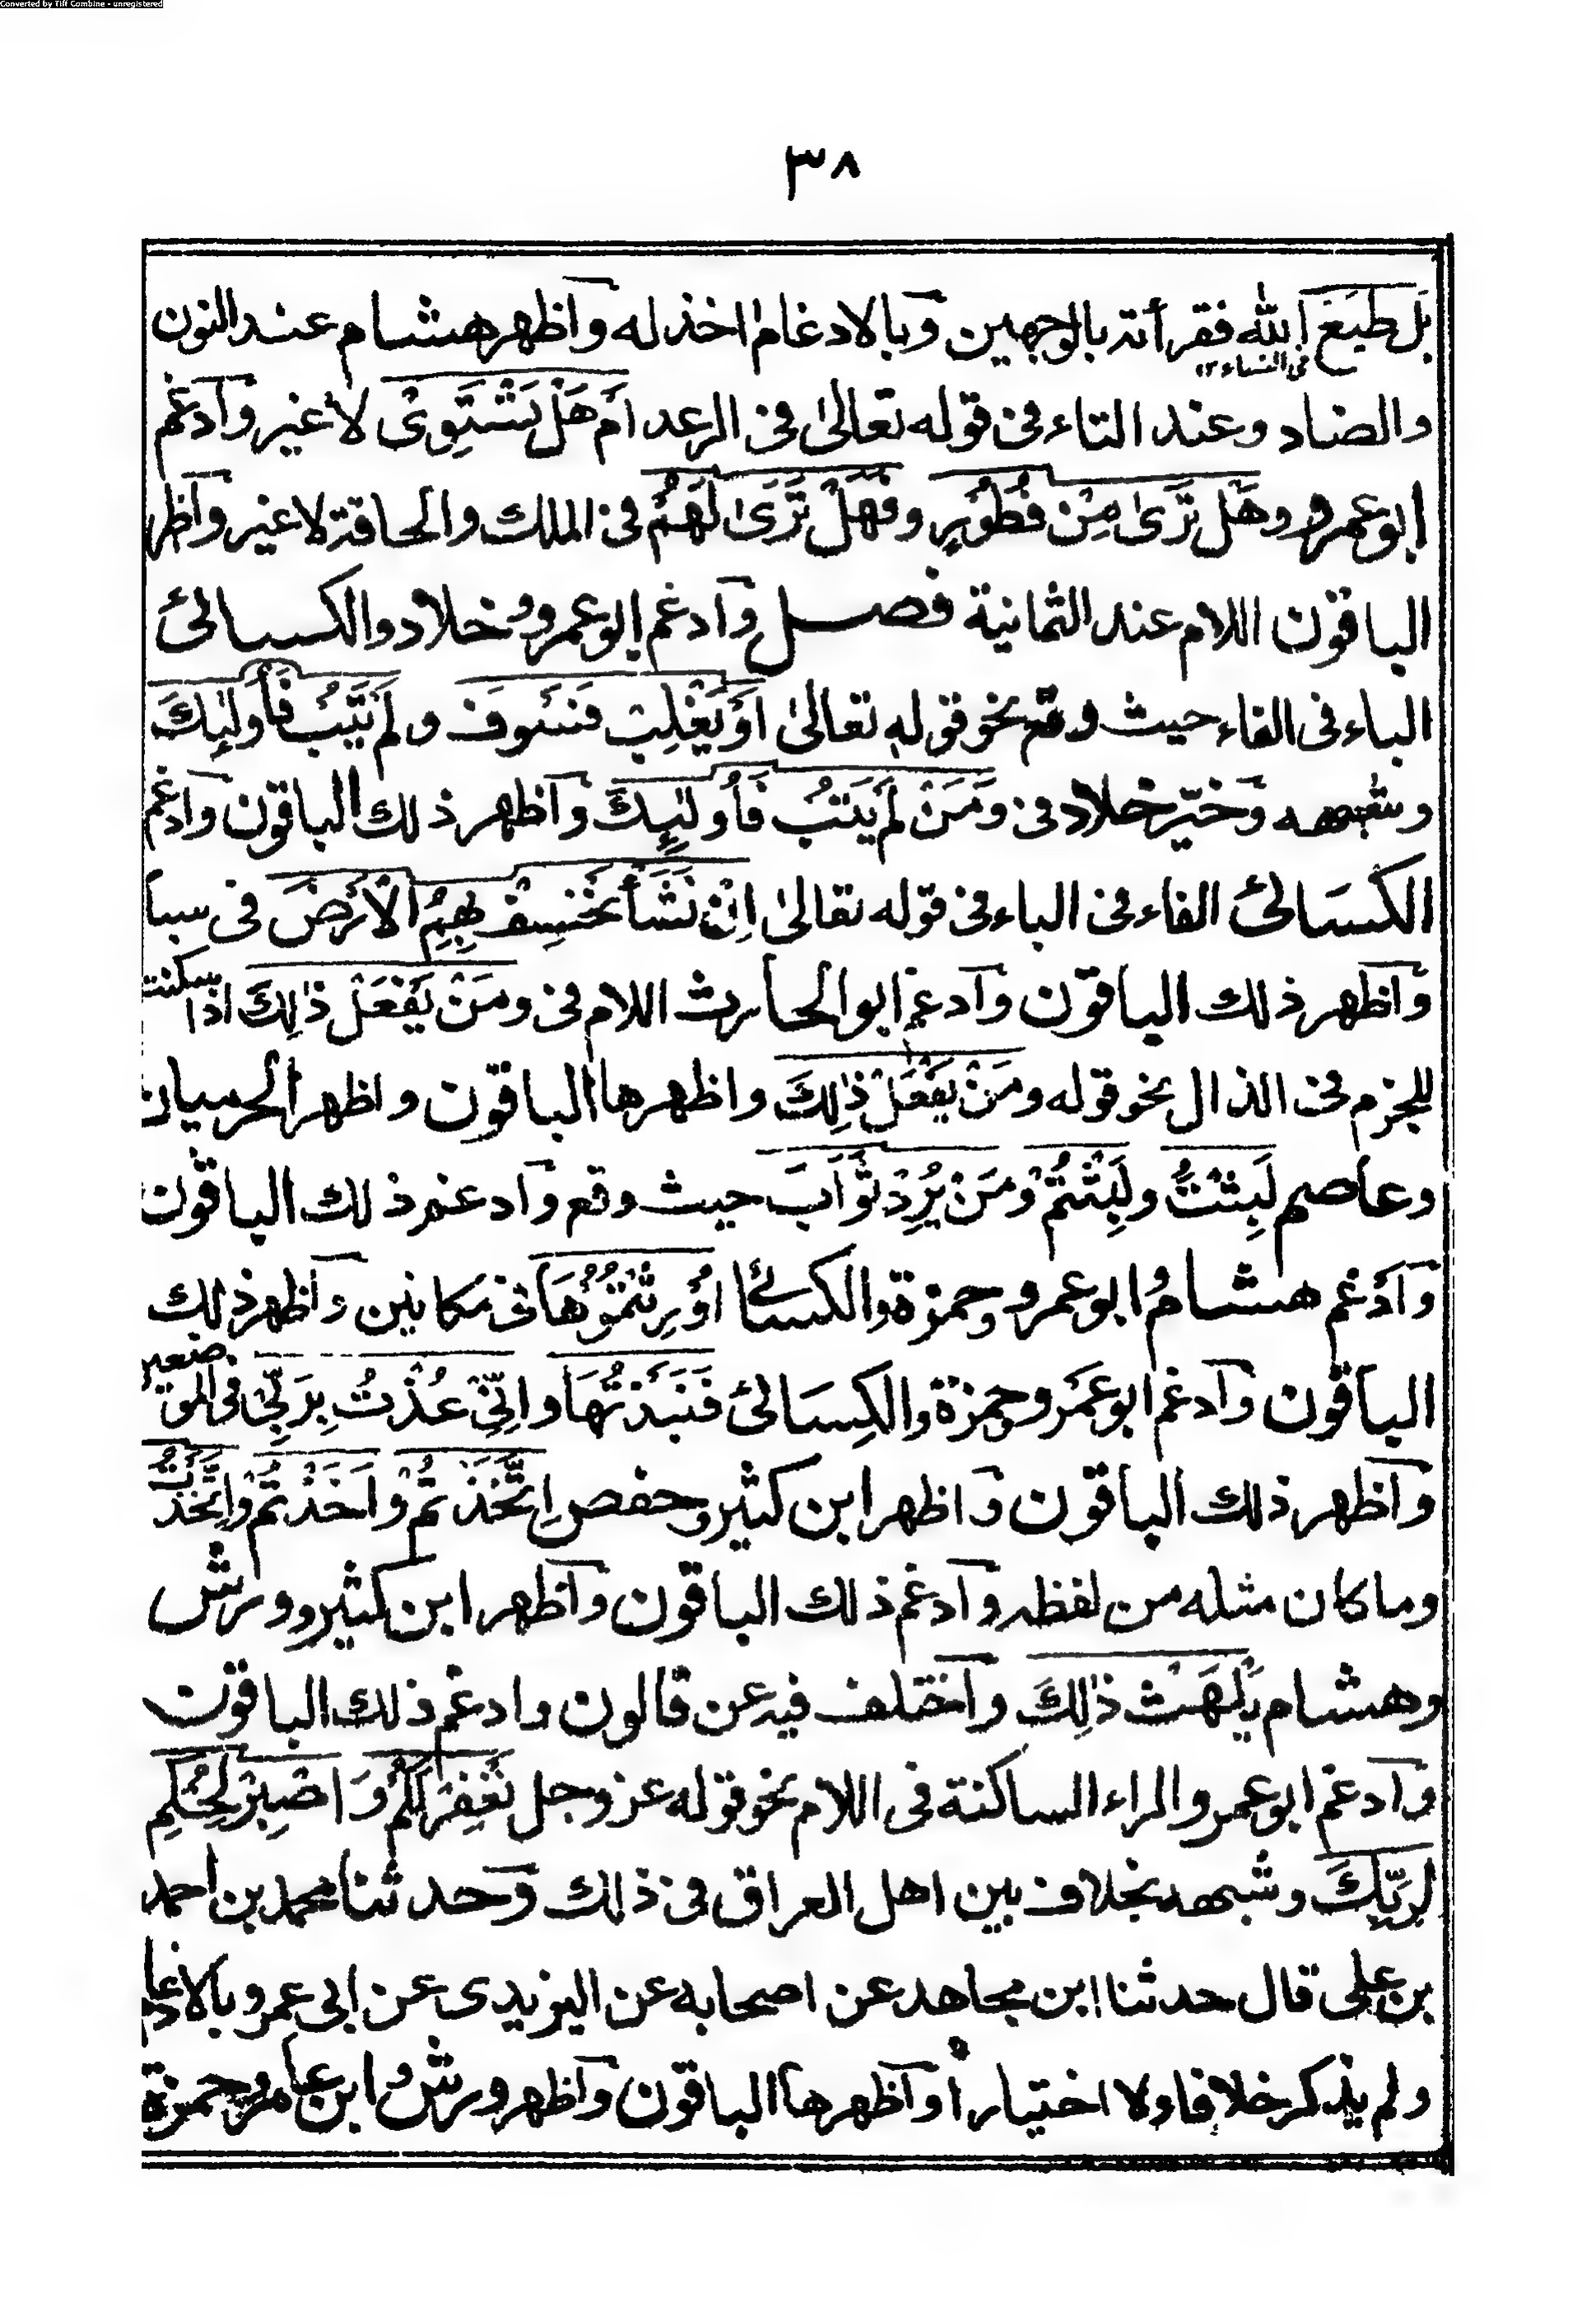 Converted by Tiff Combine - unregistered
٣٨
بَل طَبَعَ الله فقرأته بالوجهين وبالادغام اخذ له واظهر هشام عند النون
فى النساء ١٢
والضاد وعند التاء فى قوله تعالىٰ فى الرعد اَم هَلْ تَسْتَوِىْ لاغير وادغم
ابوعمرو وهَلْ تَرَىٰ مِنْ فُطُوْرٍ وفَهَلْ تَرَىٰ لَهُمْ فى الملك والحاقة لاغير واظهر
الباقون اللام عند الثمانية فصل وادغم ابوعمرو وخلاد والكسائى
الباء فى الفاء حيث وقع نحو قوله تعالىٰ اَوْ يَغْلِبْ فَسَوفَ و لَم يَتُبْ فَأُولٰئِكَ
وشبهه وخيّر خلاد فى وَمَنْ لَم يَتُبْ فَأُولٰئِكَ واظهر ذلك الباقون وادغم
الكسَائى الفاء فى الباء فى قوله تعالىٰ اِنْ نَشَأْ نَخْسِفْ بِهِمُ الْاَرْضَ فى سبا
واظهر ذلك الباقون وادغم ابو الحارث اللام فى ومَنْ يَفْعَلْ ذٰلِكَ اذا سكنت
للجزم فى الذال نحو قوله ومَنْ يَفْعَلْ ذٰلِكَ واظهرها الباقون واظهر الحرميان
وعاصم لَبِثْتُ ولَبِثْتُمْ ومَنْ يُرِدْ ثَوَابَ حيث وقع وادغم ذلك الباقون
وَاَدْغم هشامُ وابوعمرو وحمزة والكسائى اُوْرِثْتُمُوْهَا فى مكانين واظهر ذلك
الباقون وادغم ابوعمَرو وحمزة والكِسَائى فَنَبَذْتُهَا و اِنِّىْ عُذْتُ بِرَبِّىْ فى الموضعين
واظهر ذلك الباقون واظهر ابن كثير وحفص اِتَّخَذْتُمْ و اَخَذْتُمْ واتَّخَذْتُ
وماكان مثله من لفظه وادغم ذلك الباقون واظهر ابن كثير وورش
وهشام يَلْهَثْ ذٰلِكَ واختلف فيه عن قالون وادغم ذلك الباقون
وادغم ابوعمرو الراء الساكنة فى اللام نحو قوله عز وجل نَغْفِرْ لَكُمْ وَاصْبِرْ لِحُكْمِ
لِرَبِّكَ وشبهه بخلاف بين اهل العراق فى ذلك وحدثنا محمد بن احمد
بن على قال حدثنا ابن مجاهد عن اصحابه عن اليزيدى عن ابى عمرو بالادغام
ولم يذكر خلافا ولا اختيارا واظهرها الباقون واظهر ورش وابن عامر وحمزة